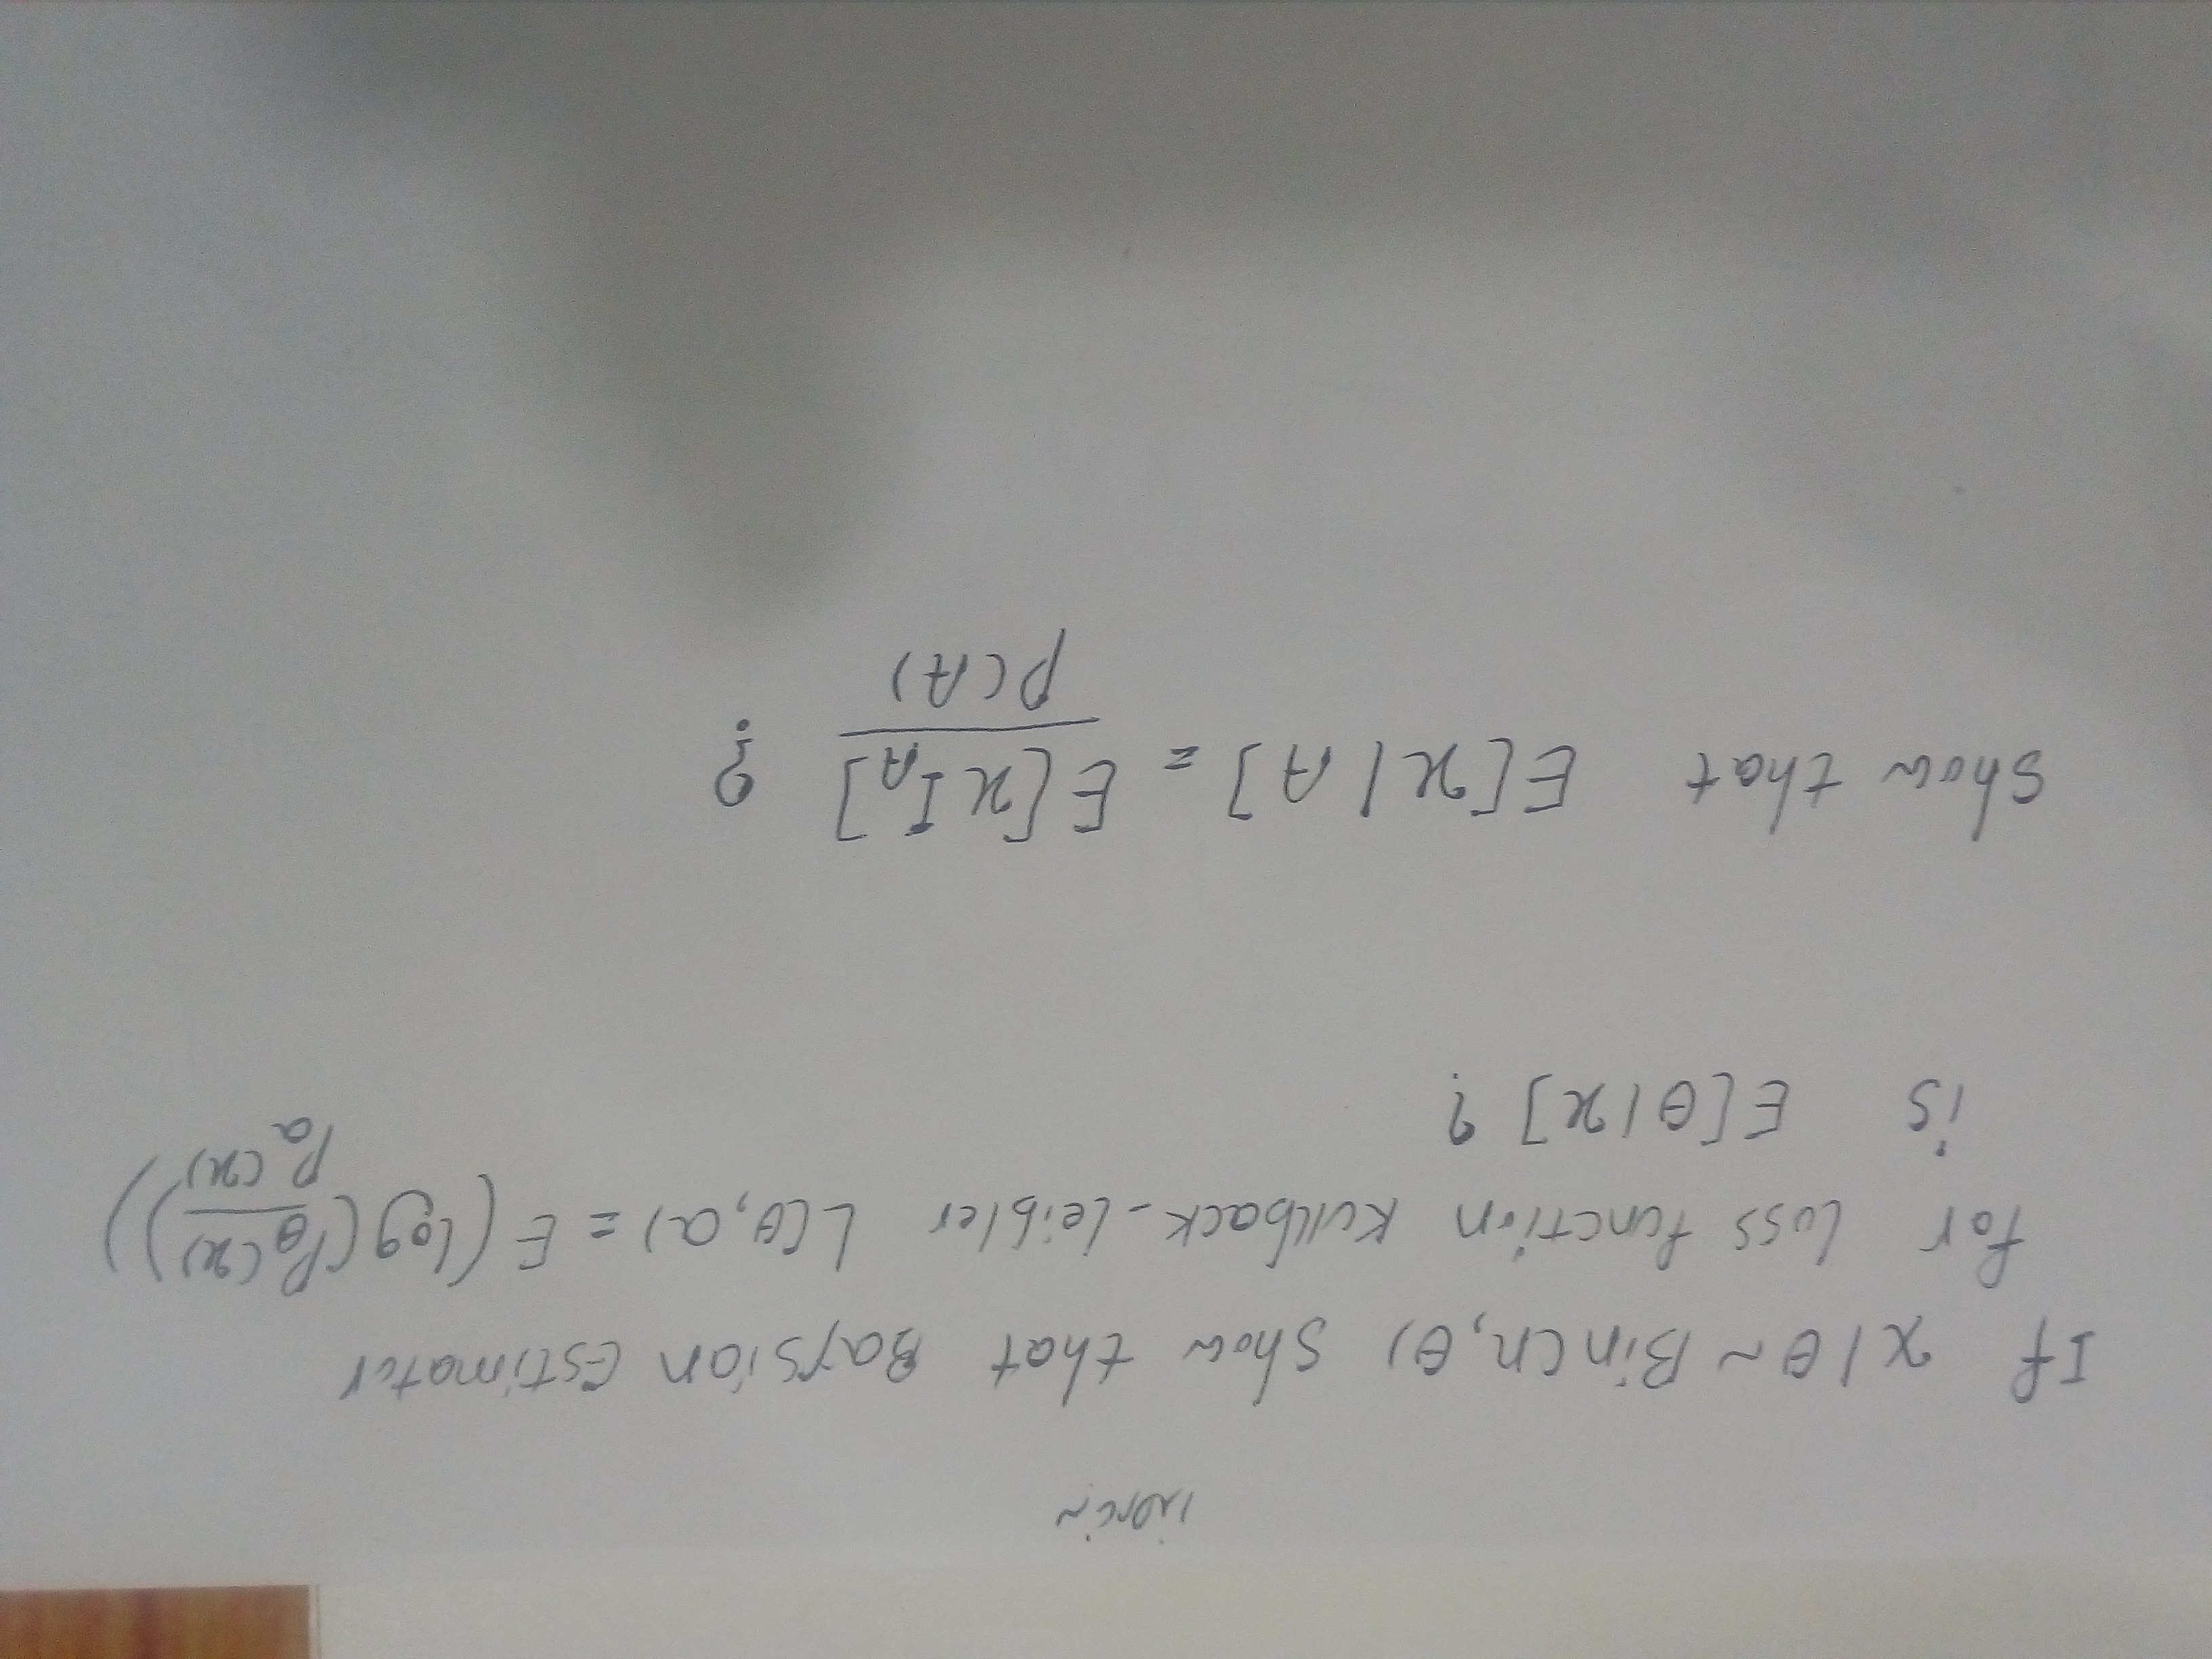 If x|θ ~ Bin(n,θ) show that Baysian Estimator
for loss function Kullback-Leibler L(θ,a) = E(log(Pθ(x)/Pa(x)))
is E[θ|x] ?
show that E[x|A] = E[x I_A]/P(A) ?